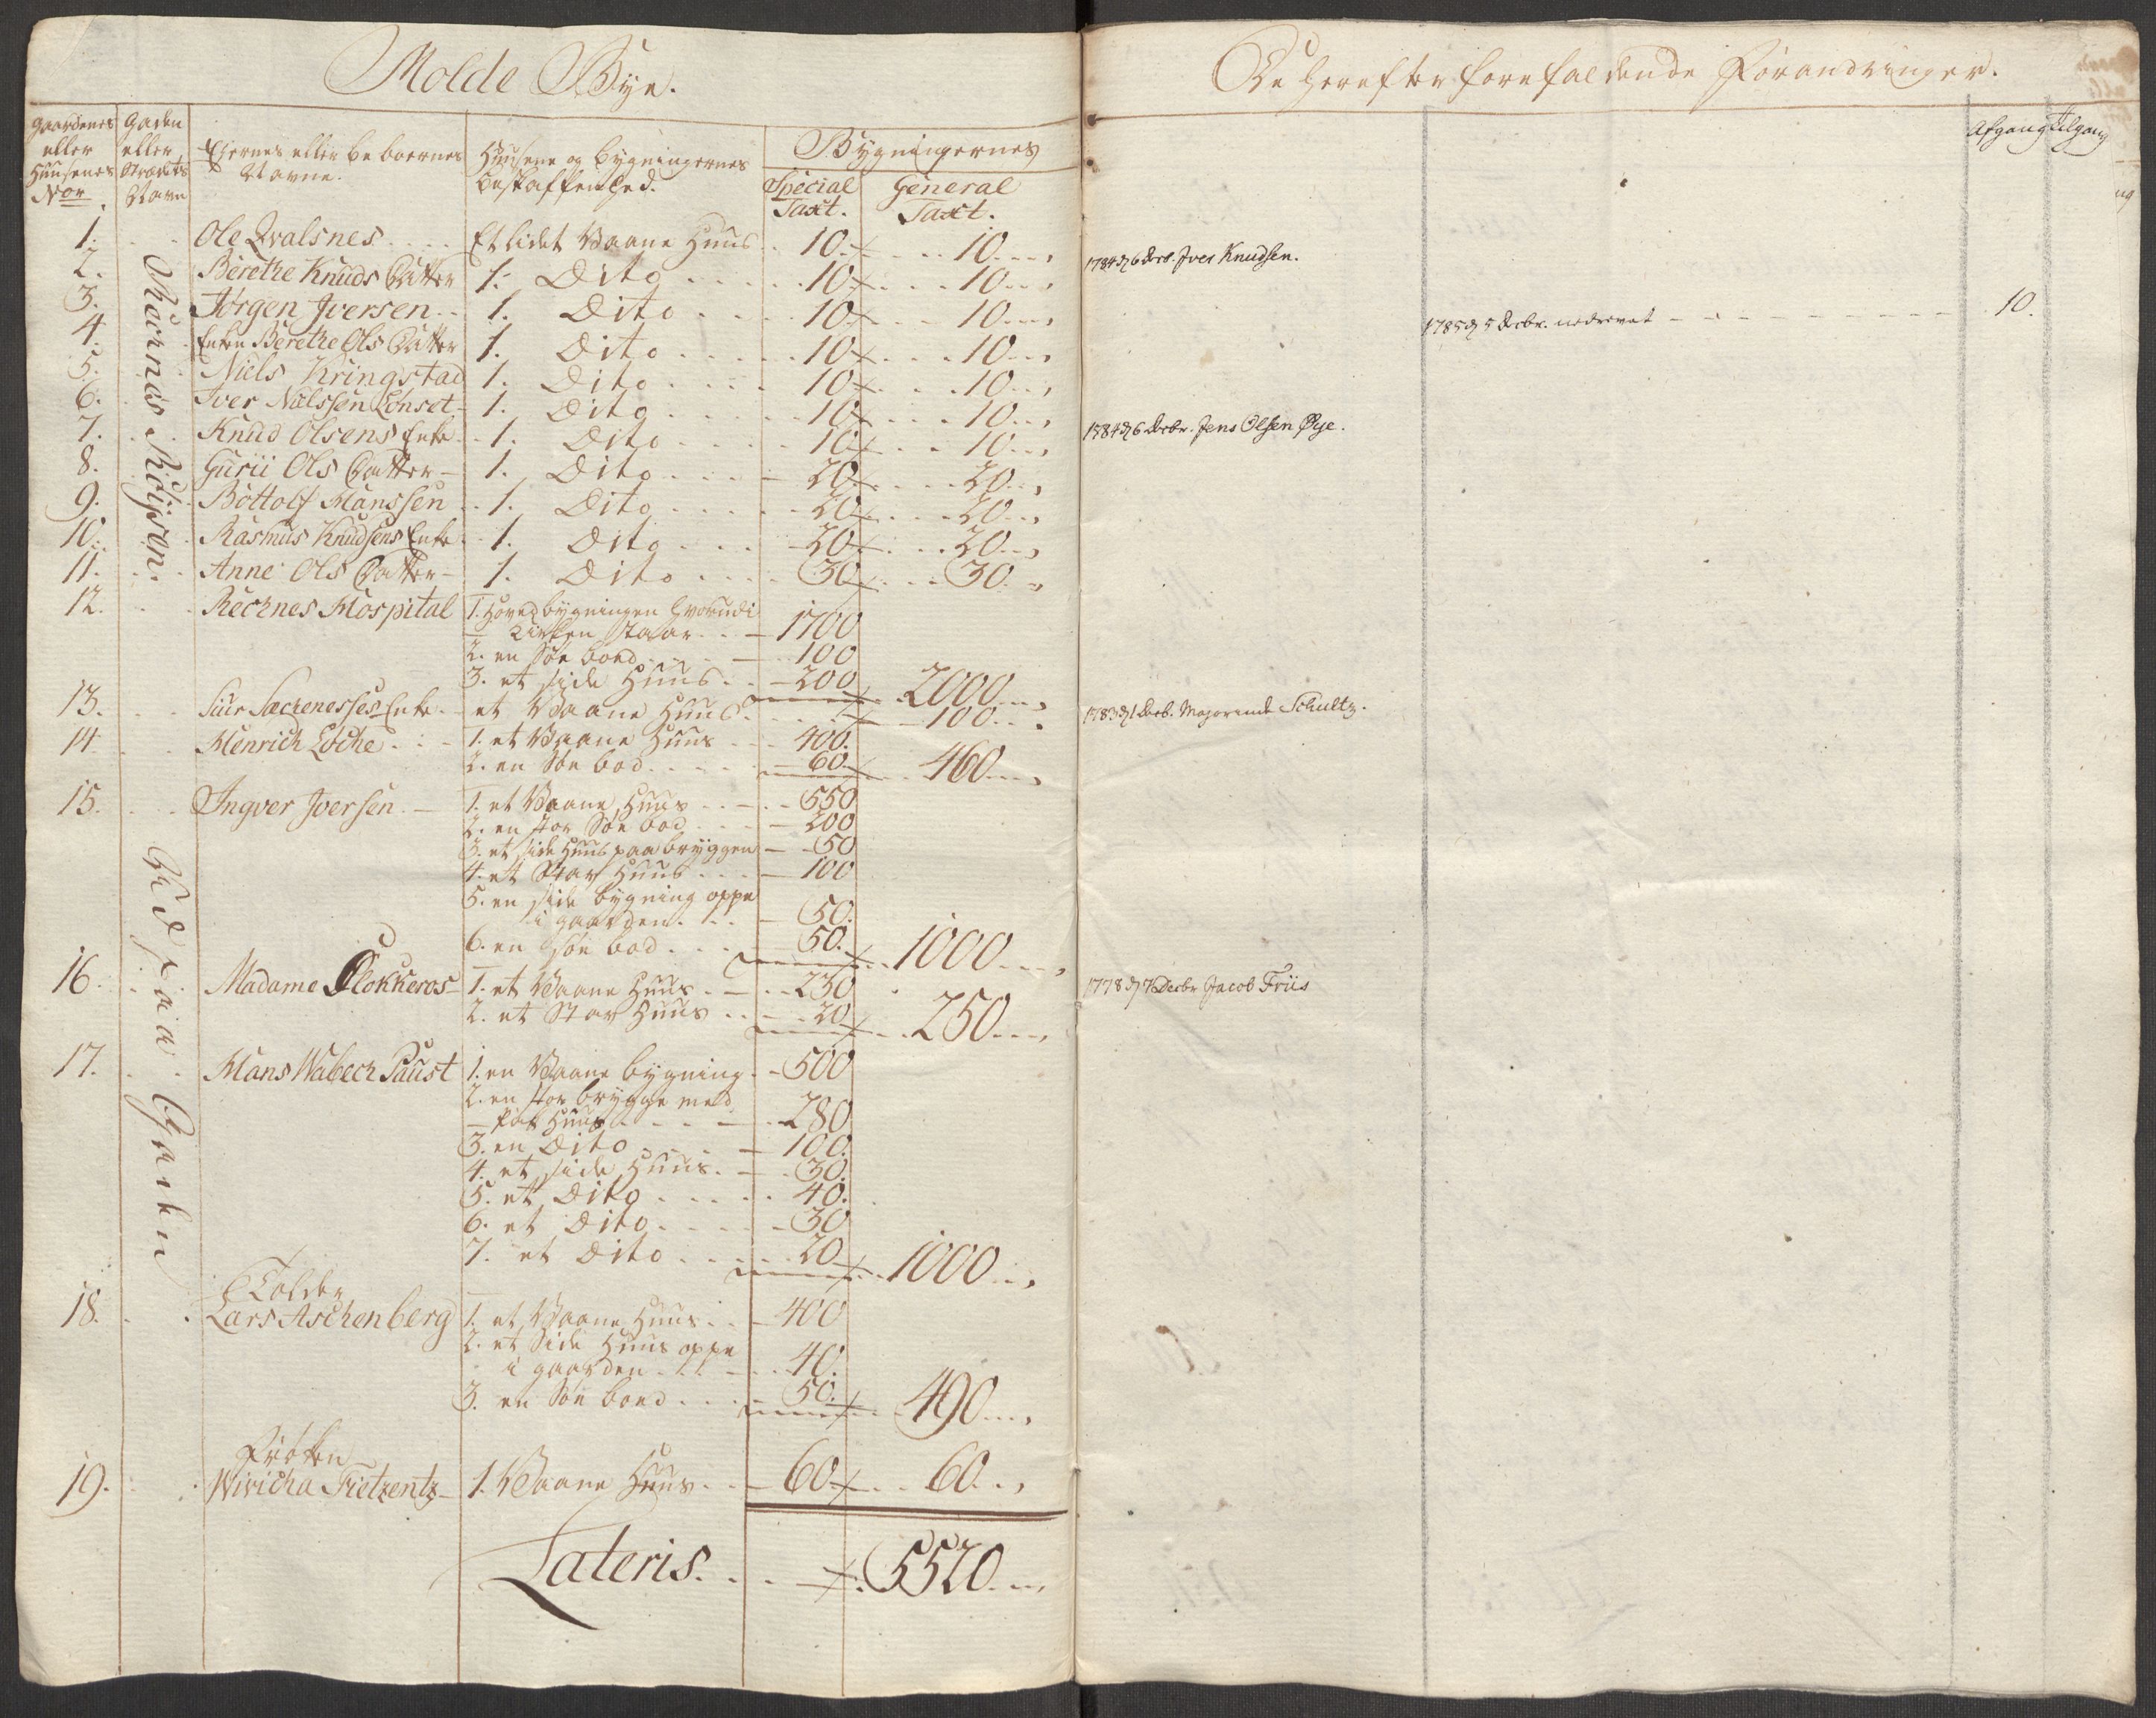 Molde Bye.
Gaardenes eller Huusenes Nor.
Gaden eller Strædets Navn
Ejernes eller beboernes Navne.
Huusene og bygningernes beskaffenhed.
Bygningernes
Special Taxt.
General Taxt.
Rechnes Kdijsen.
1. Ole Qvalsnes Et lidet Vaane Huus 10 10
2. Berethe Knuds Datter 1. Dito 10 10
3. Jørgen Jversen 1. Dito 10 10
4. Enken Berethe Ols Datter 1. Dito 10 10
5. Niels Kringstad 1. Dito 10 10
6. Iver Nielssen Lønset 1. Dito 10 10
7. Knud Olsens Enke 1. Dito 10 10
8. Gurii Ols Datter 1. Dito 20 20
9. Bottolf Hanssen 1. Dito 20 20
10. Rasmus Knudsens Enke 1. Dito 20 20
11. Anne Ols Datter 1. Dito 30 30
12. Rechnes Hospital 1. Hovedbygningen hvorudi
Kirken staar 1700
2. en Søe boed 100
3. et side Huus 200 2000
13. Siur Enke et Vaane Huus 100
14. Henrich Loche 1. et Vaane Huus 400
2. en Søe bod 60 460
15. Ingver Jversen 1. et Vaane Huus 550
2. en stor Søe bod 200
3. et side Huus paa bryggen 50
4. et Huus 100
5. en side bygning oppe
i gaarden 50
6. en Søe bod 50 1000
16. Madame Klokkeros 1. et Vaane Huus 230
2. et Huus 20 250
17. Hans Wabech Paust 1. en Vaane bygning 500
2. en stor brygge med
Huus 280
3. en Dito 100
4. et side Huus 30
5. et Dito 40
6. et Dito 30
7. et Dito 20 1000
Tolder
18. Lars Aschenberg 1. et Vaane Huus 400
2. et Side Huus oppe
i gaarden 40
3. en Søe boed 50 490
Frøken
19. Wivicha Tietzentz 1. Vaane Huus 60 60
Lateris. 5520
De herefter forefaldende Forandringer.
Afgang Tilgang
1784 d 6 Decb. Jver Knudsen.
1785 d 5 Decbr. nedrevet 10.
1784 d 6 Decbr. Jens Olsen Øye.
1783 d 1 Decb. Majorinde Schultz.
1778 d 7 Decbr Jacob Friis